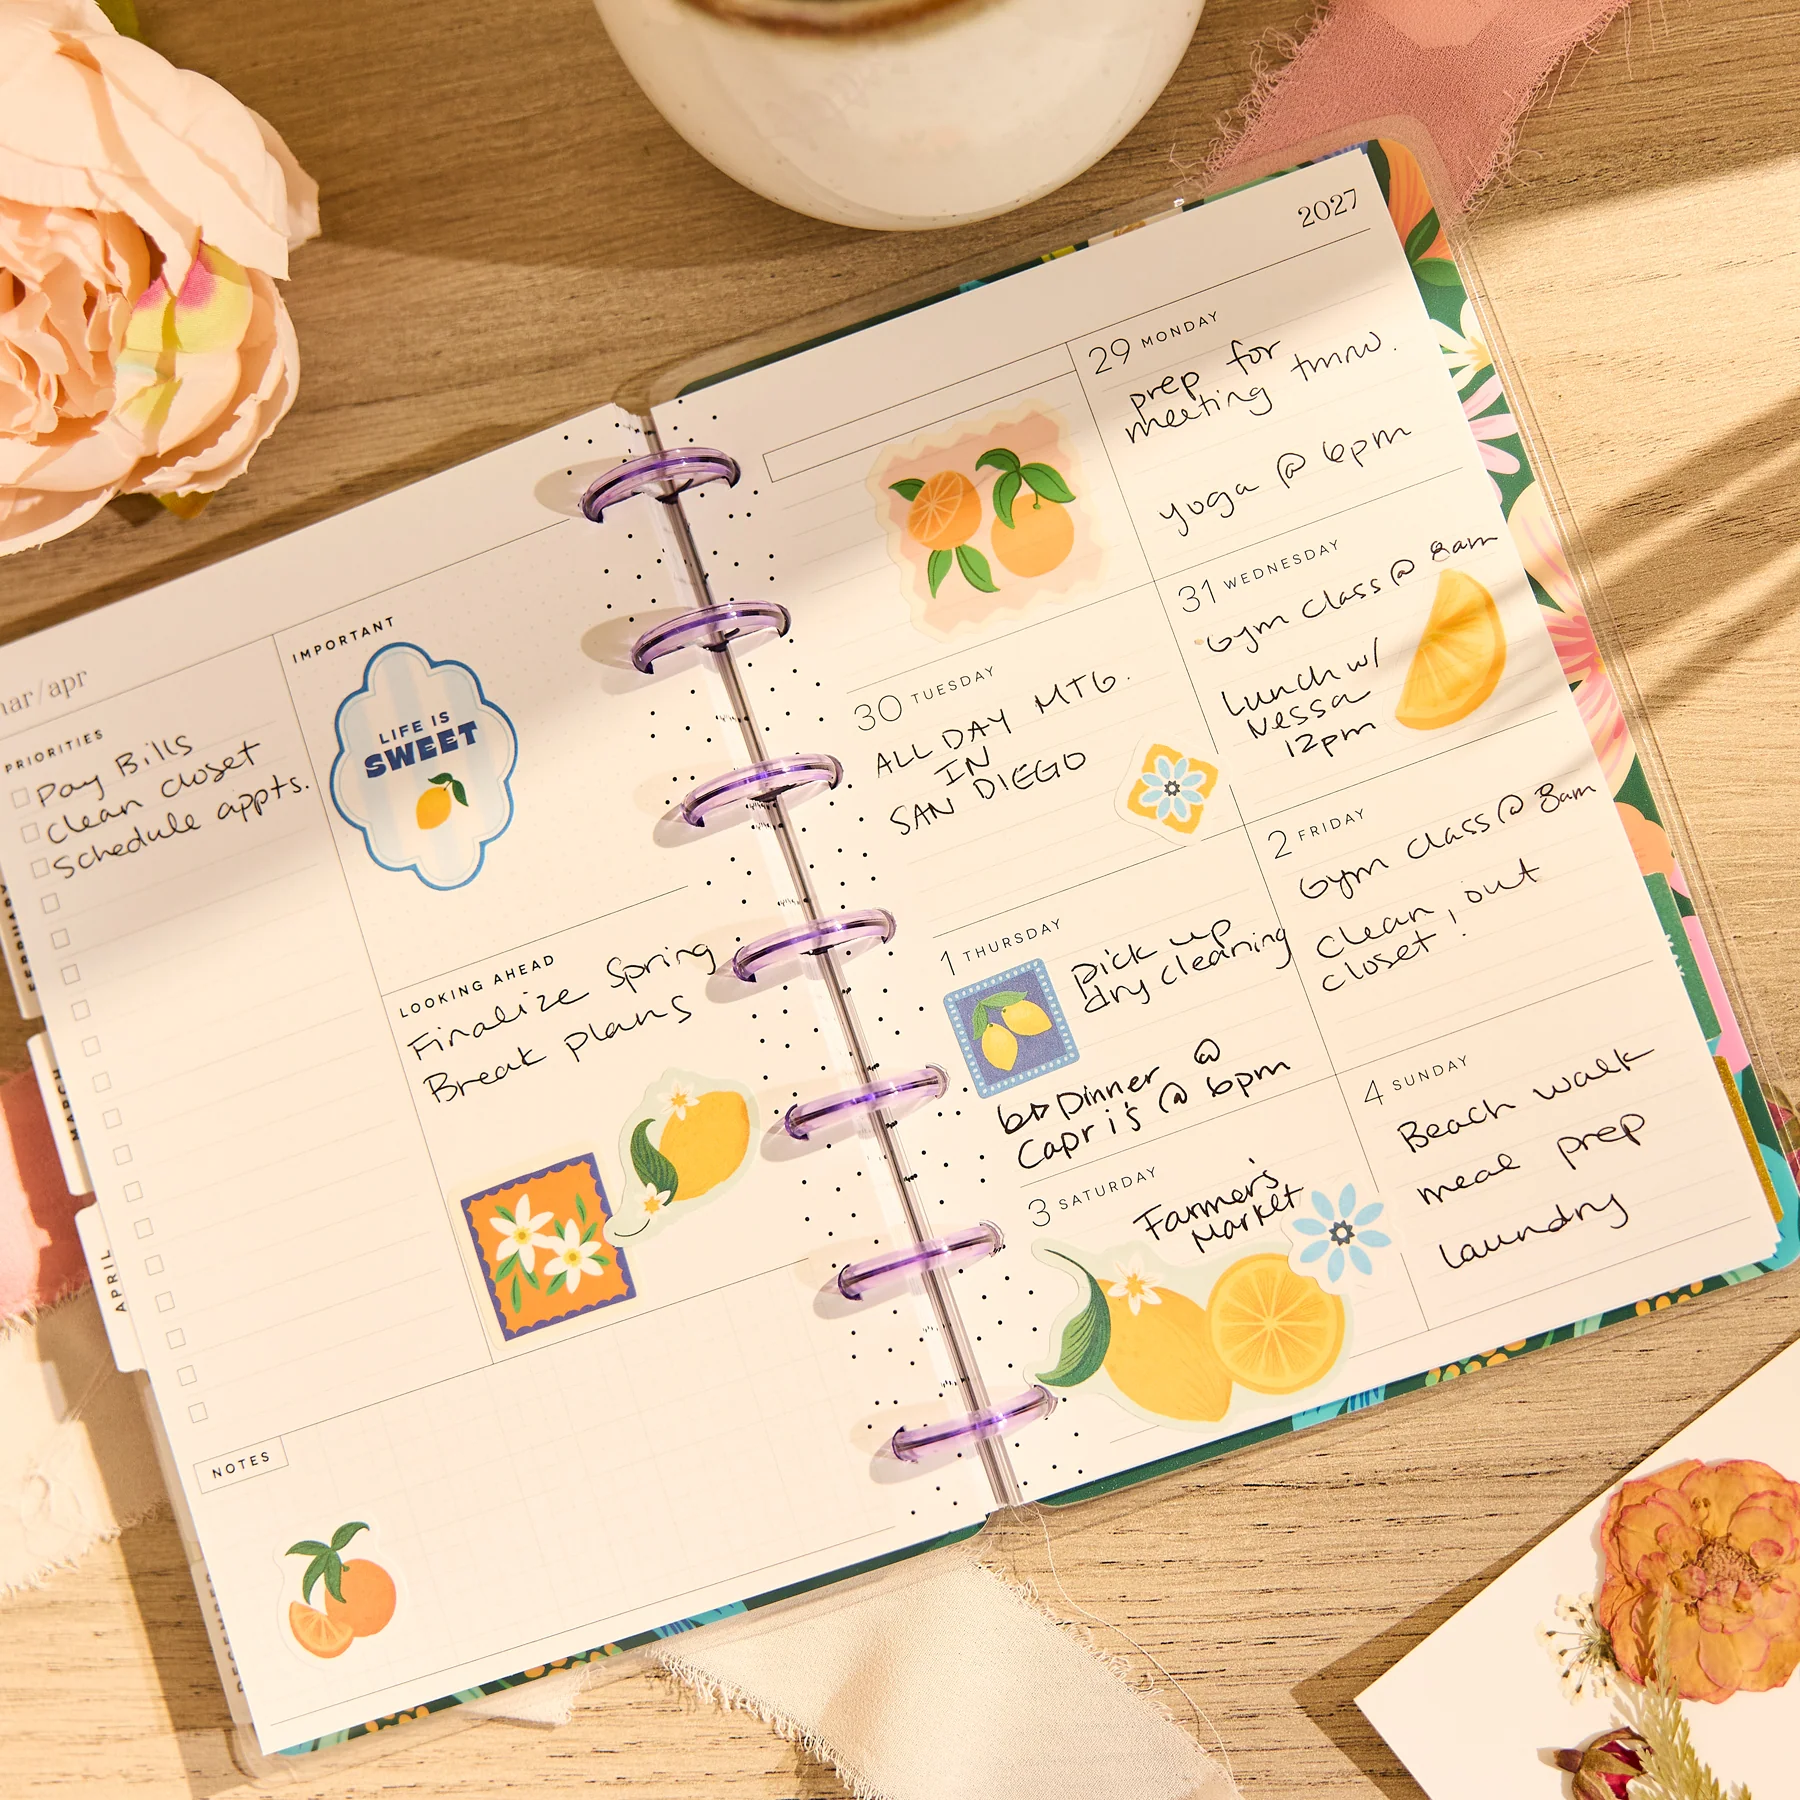 mar/apr
PRIORITIES
Pay Bills
Clean closet
Schedule appts.
IMPORTANT
LIFE IS
SWEET
LOOKING AHEAD
Finalize Spring
Break plans
NOTES
FEBRUARY
MARCH
APRIL
DECEMBER
2027
29 MONDAY
prep for
meeting tmrw.
yoga @ 6pm
30 TUESDAY
ALL DAY MTG.
IN
SAN DIEGO
31 WEDNESDAY
Gym Class @ 8am
Lunch w/
Nessa
12pm
1 THURSDAY
pick up
dry cleaning
Dinner @
Capri's @ 6pm
2 FRIDAY
Gym class @ 8am
clean out
closet!
3 SATURDAY
Farmer's
Market
4 SUNDAY
Beach walk
meal prep
laundry